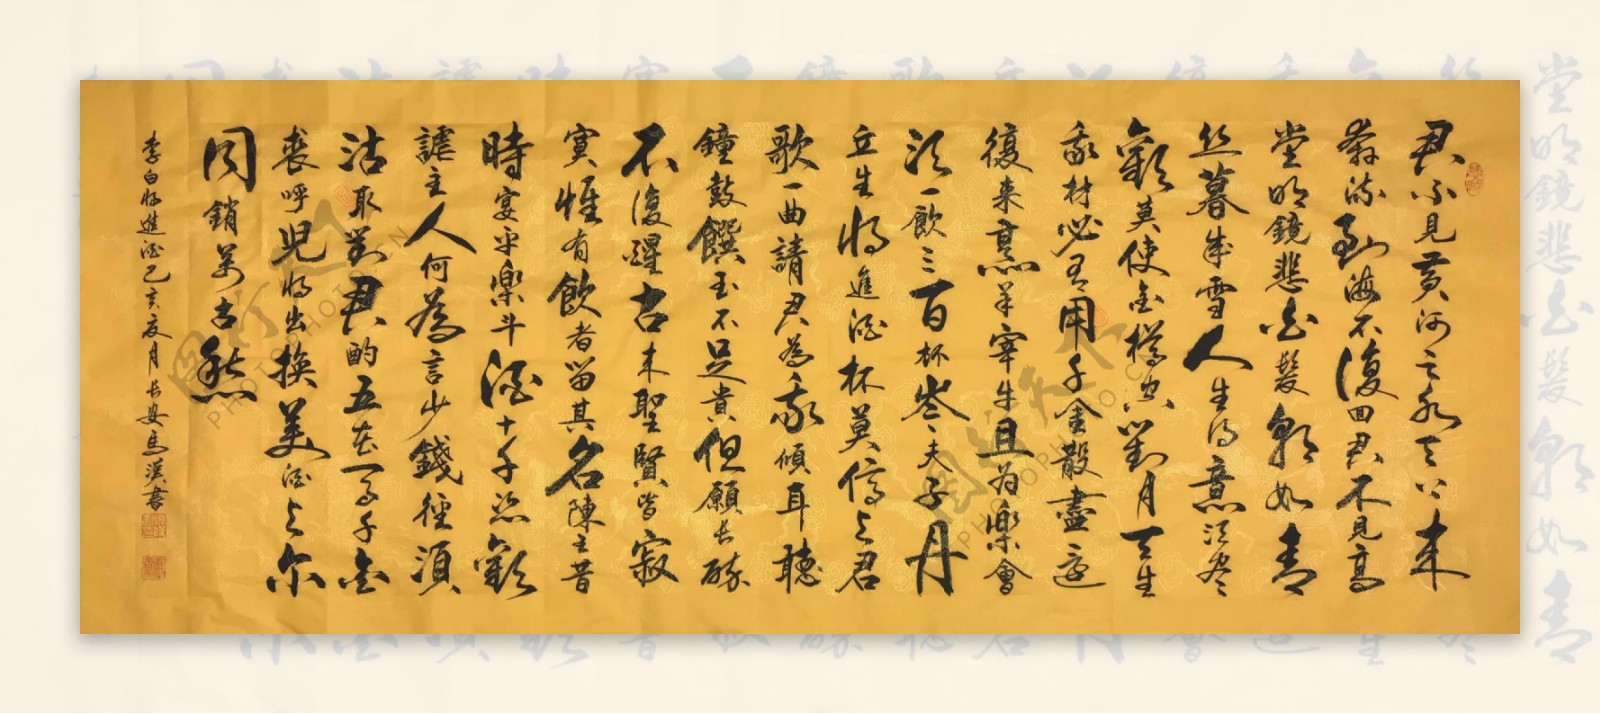 君不見黃河之水天上來
奔流到海不復回君不見高
堂明鏡悲白髮朝如青
丝暮成雪人生得意須尽
歡莫使金樽空對月天生
我材必有用千金散盡還
復来烹羊宰牛且为樂會
須一飲三百杯岑夫子丹
丘生將進酒杯莫停与君
歌一曲請君為我傾耳聽
鐘鼓饌玉不足貴但願長醉
不復醒古来聖賢皆寂
寞惟有飲者留其名陳王昔
時宴平樂斗酒十千恣歡
謔主人何為言少錢徑須
沽取對君酌五花馬千金
裘呼兒將出換美酒与尔
同銷萬古愁
李白將進酒己亥夏月長安馬書
PHOTOPHOTO.CN